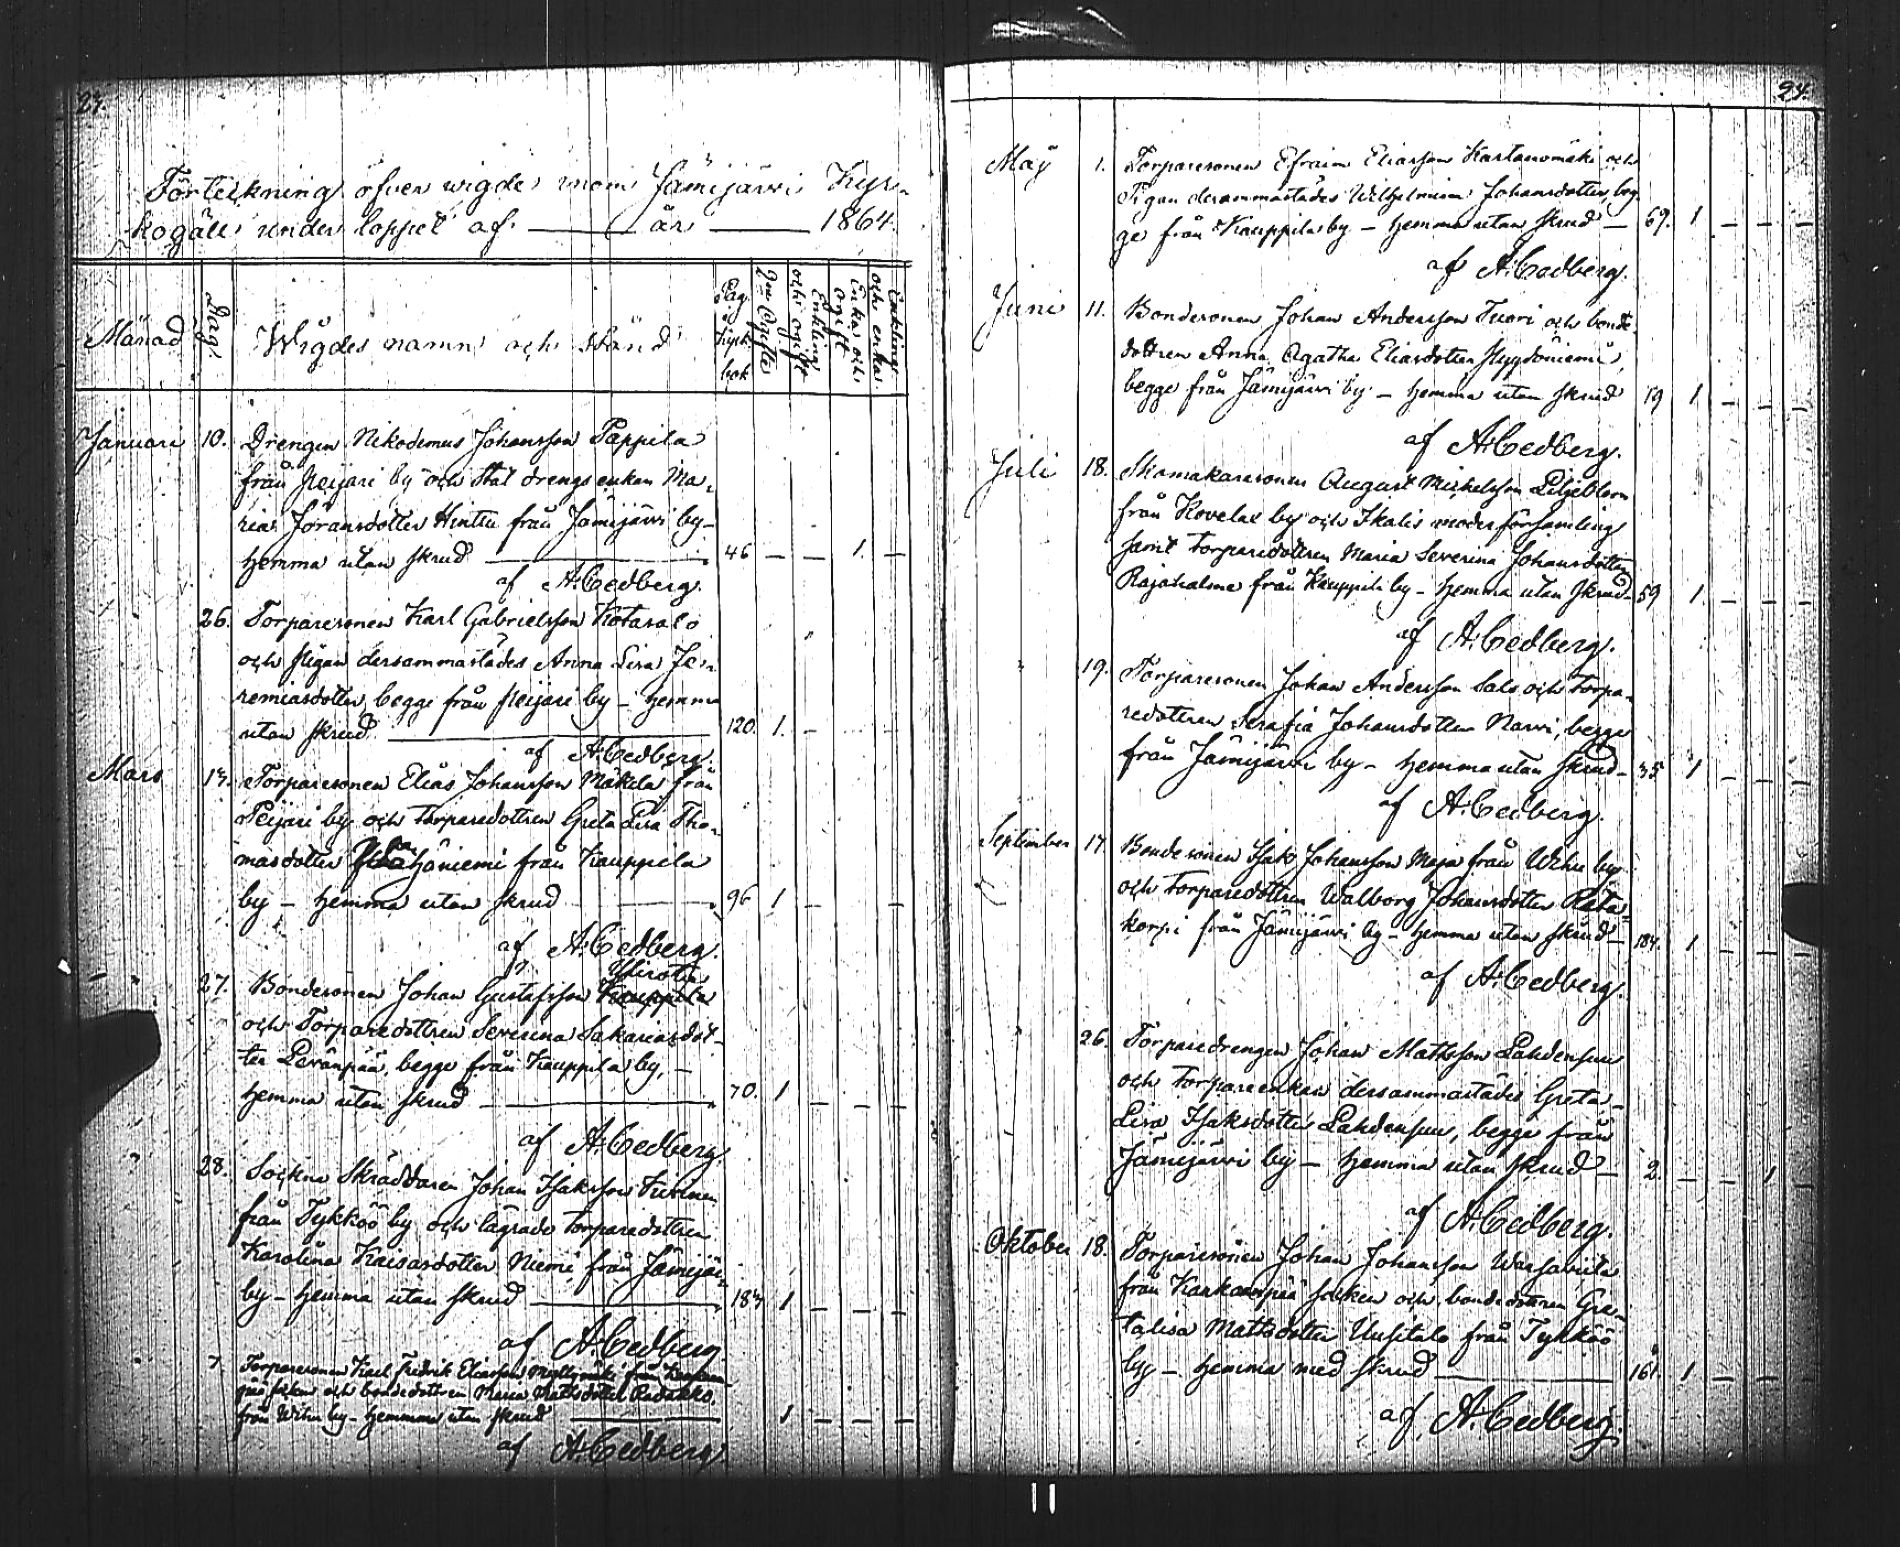 23.
Förteckning öfver wigde inom Jämijärvi Kyr-
kogäll under loppet af år 1864.
Månad Dag. Wigdes namn och stånd Pag. i Kyrk. bok 2ne Ogifte Enkling och ogift Enka och ogift Enkling och enka
Januari 10. Drengen Nikodemus Johansson Pappila
från Peijari by och Stat drengs enkan Ma-
ria Göransdotter Hinttu från Jämijärvi by -
hemma utan skrud 46 — — 1. —
af A. Cedberg.
26. Torparesonen Karl Gabrielsson Kotasalo
och Pigan dersammastädes Anna Lisa Je-
remiasdotter, begge från Peijari by - hemma
utan skrud 120. 1. -
af A. Cedberg.
Mars 13. Torparesonen Elias Johansson Mäkelä från
Peijari by och Torparedottren Greta Lisa Tho-
masdotter häniemi från Kauppila
by - hemma utan skrud 96 1 - - -
af A. Cedberg.
27. Bondesonen Johan Gustafsson Kauppila
och Torparedottren Severina Sakariasdot-
ter Peränpää, begge från Kauppila by, -
hemma utan skrud 70. 1 — — —
af A. Cedberg.
28. Sockne Skräddaren Johan Isaksson
från Tykköö by och lägrade Torparedottren
Karolina Kaisasdotter Niemi från Jämijärvi
by - hemma utan skrud 183 1 — — —
af A. Cedberg
" Torparesonen Karl Fredrik Eliasson Myllymäki från Kankaan-
pää socken och bondedottren Maria Mattsdotter
från Wihu by - hemma utan skrud 1 — — —
af A. Cedberg
24.
Maij 1. Torparesonen Efraim Eliasson Kartanomäki och
Pigan dersammastädes Wilhelmina Johansdotter, beg-
ge från Kauppila by - hemma utan skrud — 69. 1 — — —
af A. Cedberg.
Juni 11. Bondesonen Johan Andersson Tuori och bonde-
dottren Anna Agatha Eliasdotter
begge från Jämijärvi by - hemma utan skrud 19 1 — — —
af A. Cedberg.
Juli 18. Skomakaresonen August Mickelsson Liljeblom
från Kovelax by och Ikalis moderförsamling
samt Torparedottren Maria Severina Johansdotter
Rajahalme från Kauppila by - hemma utan skrud - 59 1 — — —
af A. Cedberg.
" 19. Torparesonen Johan Andersson Salo och Torpa-
redottren Serafia Johansdotter Narvi, begge
från Jämijärvi by - hemma utan skrud - 35 1 — — —
af A. Cedberg.
September 17 Bondesonen Isak Johansson Maja från Wihu by
och Torparedottren Walborg Johansdotter Rata-
korpi från Jämijärvi by - hemma utan skrud - 184. 1 — — —
af A. Cedberg.
" 26. Torparedrengen Johan Mattsson Lahdensuu
och Torpareenkan dersammastädes Greta
Lisa Isaksdotter Lahdensuu, begge från
Jämijärvi by - hemma utan skrud — 2. — — 1 —
af A. Cedberg.
Oktober 18. Torparesonen Johan Johansson
från Kankaanpää socken och bondedottren Gre-
talisa Mattsdotter Uusitalo från Tykköö
by - hemma med skrud 161 1 — — —
af A. Cedberg.